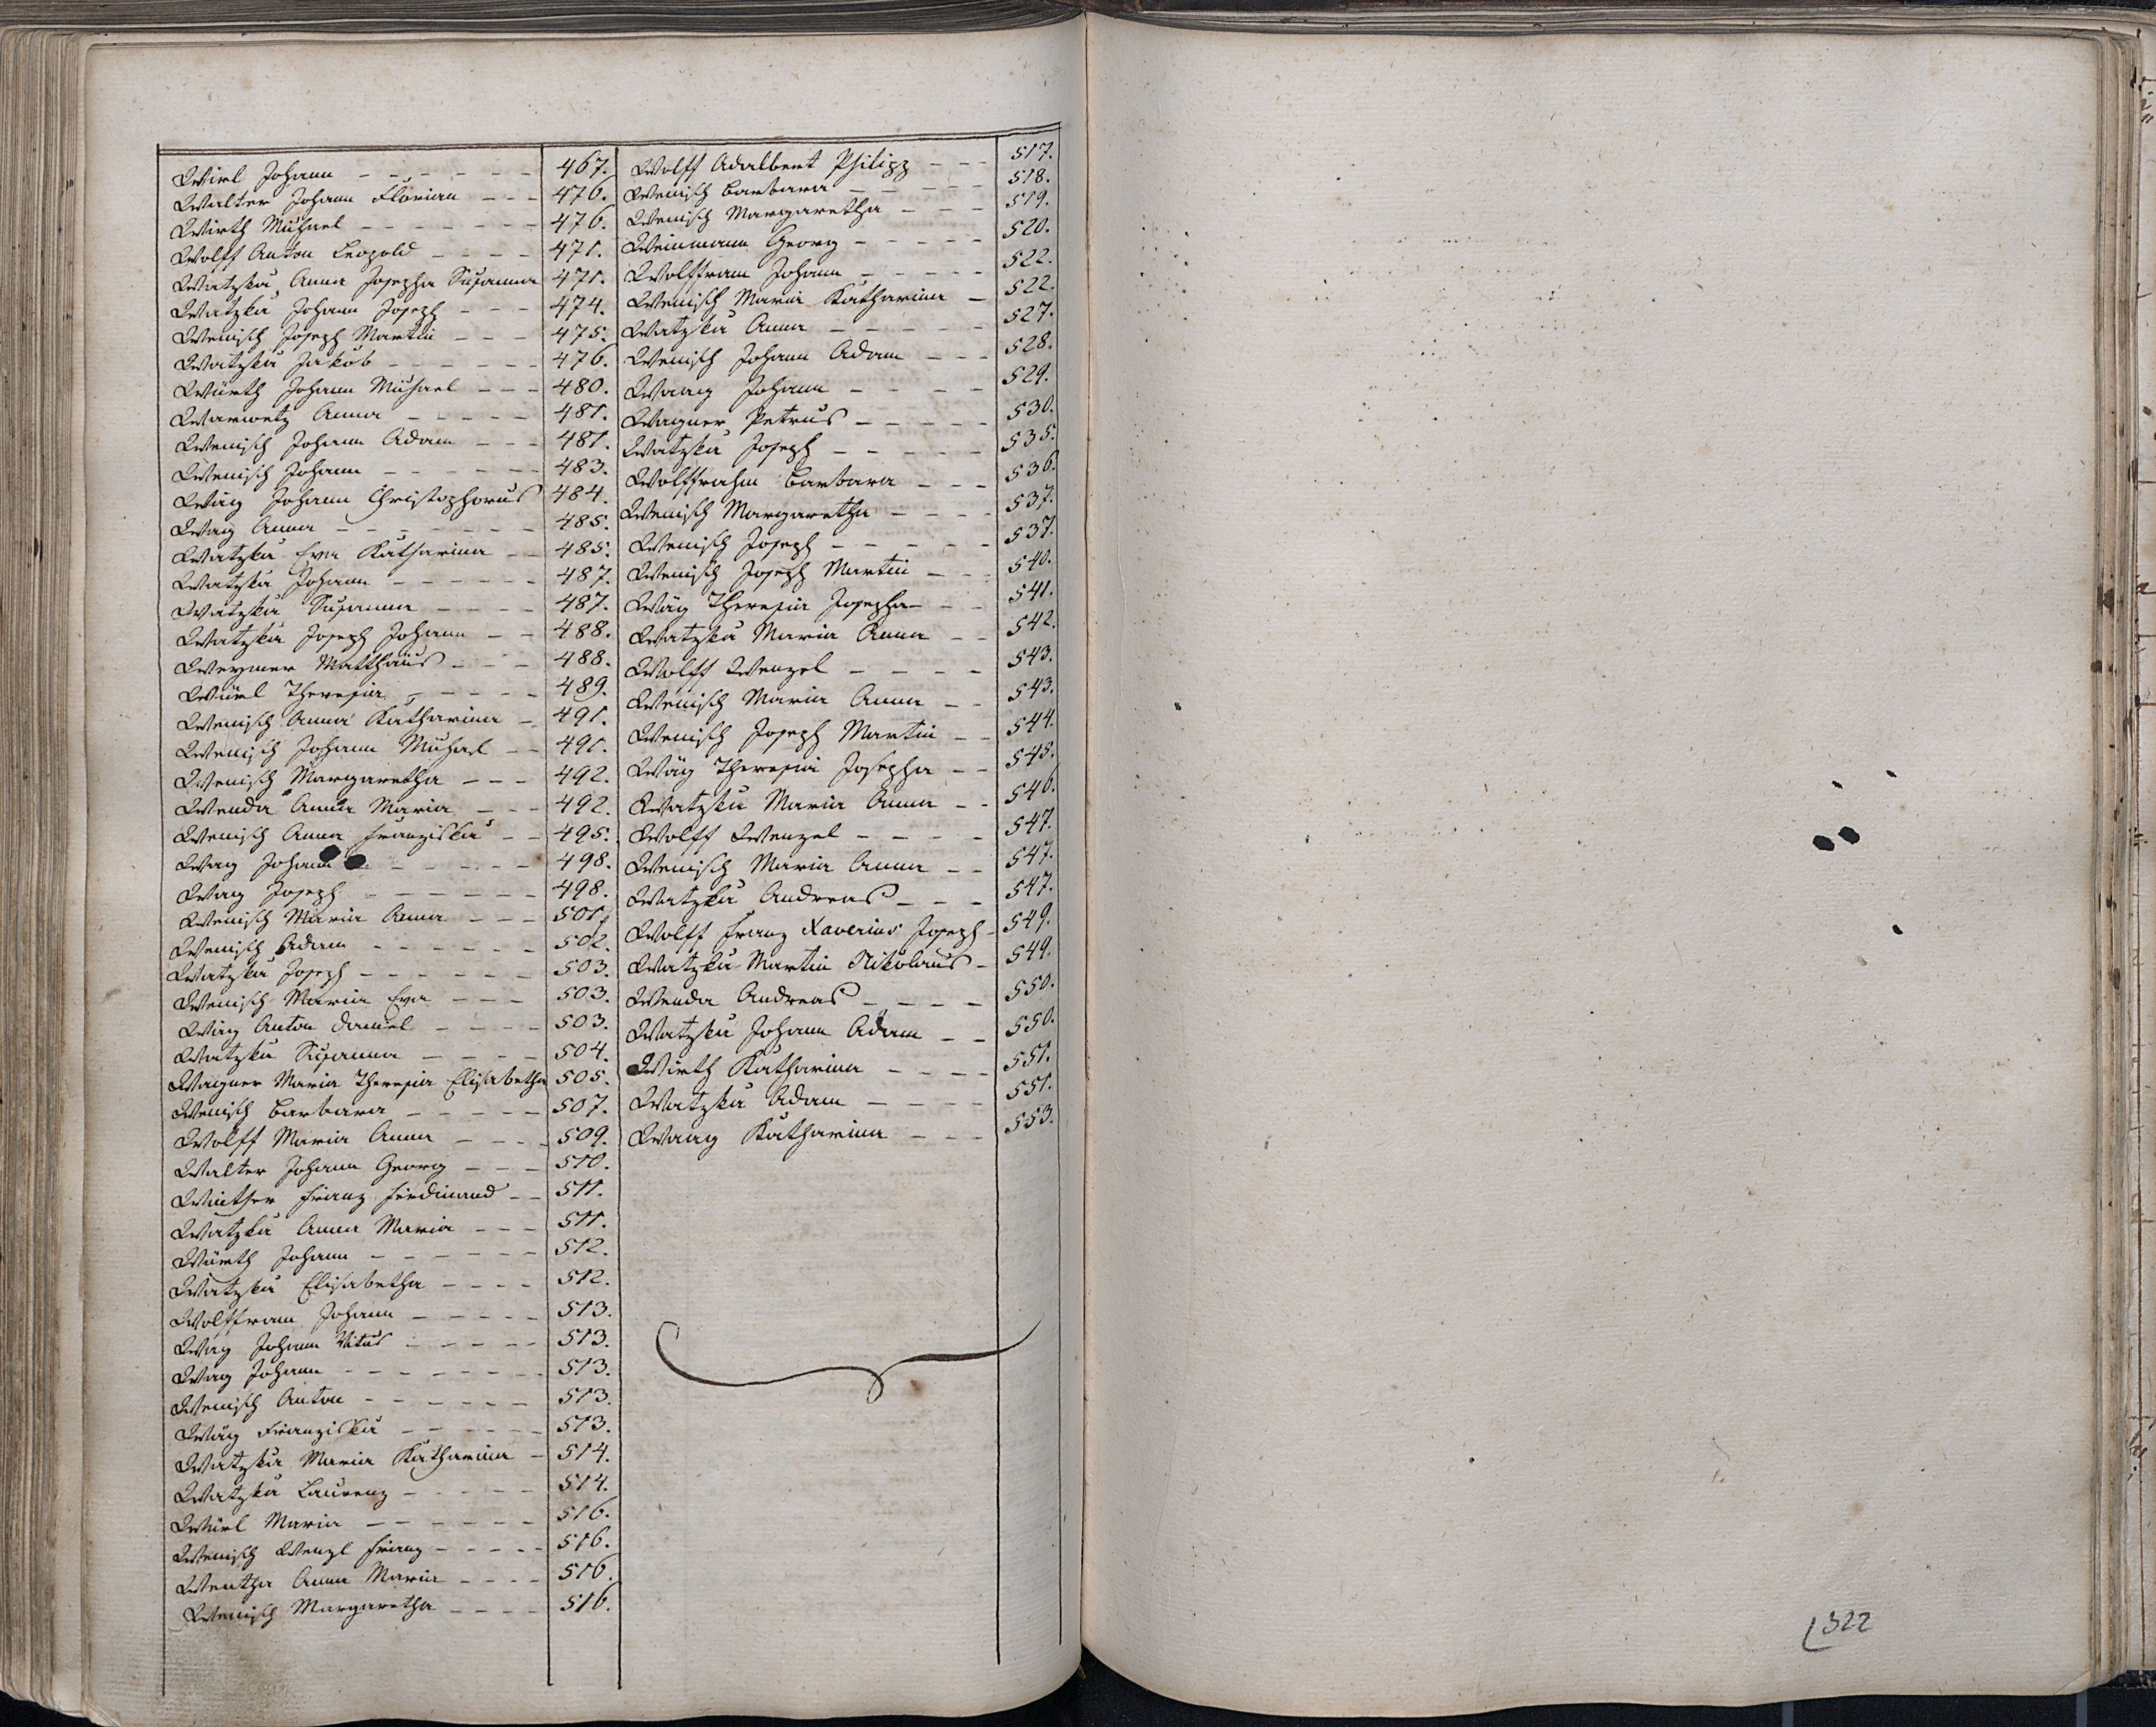 Wirl Johann - - - - - - - 467.
Walter Johann Florian - - - 476.
Wirth Michael - - - - - - - 476.
Wolff Anton Leopold - - - - 471.
Watzka Anna Josepha Susanna 471.
Watzka Johann Joseph - - - 474.
Wenisch Joseph Martin - - - 475.
Watzka Jakob - - - - - - 476.
Würth Johann Michael - - - 480.
Warwetz Anna - - - - - 481.
Wenisch Johann Adam - - - 481.
Wenisch Johann - - - - - - 483.
Wäg Johann Christophorus 484.
Wag Anna - - - - - - - 485.
Watzka Eva Katharina - - 485.
Watzka Johann - - - - - - 487.
Watzka Susanna - - - - 487.
Watzka Joseph Johann - - 488.
Weymer Matthäus - - - 488.
Würl Theresia - - - - - 489.
Wenisch Anna Katharina - 491.
Wenisch Johann Michael - - 491.
Wenisch Margaretha - - - 492.
Wenda Anna Maria - - - 492.
Wenisch Anna Franziska - - 495.
Wag Johann - - - - - 498.
Wag Joseph - - - - - - 498.
Wenisch Maria Anna - - - 501.
Wenisch Adam - - - - - - 502.
Watzka Joseph - - - - - - 503.
Wenisch Maria Eva - - - 503.
Wäg Anton Daniel - - - - 503.
Watzka Susanna - - - - 504.
Wagner Maria Theresia Elisabetha 505.
Wenisch Barbara - - - - - 507.
Wolff Maria Anna - - - - 509.
Walter Johann Georg - - - 510.
Winther Franz Ferdinand - - 511.
Watzka Anna Maria - - - 511.
Würth Johann - - - - - - 512.
Watzka Elisabetha - - - - 512.
Wolffram Johann - - - - - 513.
Wag Johann Vitus - - - - - 513.
Wag Johann - - - - - - - 513.
Wenisch Anton - - - - - - 513.
Wäg Franziska - - - - - 513.
Watzka Maria Katharina - 514.
Watzka Laurenz - - - - - 514.
Würl Maria - - - - - - 516.
Wenisch Wenzl Franz - - - - - 516.
Wentha Anna Maria - - - - 516.
Wenisch Margaretha - - - - 516.
Wolff Adalbert Philipp - - - 517.
Wenisch Barbara - - - - - 518.
Wenisch Margaretha - - - 519.
Weinmann Georg - - - - - 520.
Wolffram Johann - - - - - 522.
Wenisch Maria Katharina - 522.
Watzka Anna - - - - - 527.
Wenisch Johann Adam - - - 528.
Waag Johann - - - - - 529.
Wagner Petrus - - - - - 530.
Watzka Joseph - - - - - 535.
Wolffrahm Barbara - - - 536.
Wenisch Margaretha - - - - 537.
Wenisch Joseph - - - - - 537.
Wenisch Joseph Martin - - - 540.
Wäg Theresia Josepha - - - 541.
Watzka Maria Anna - - 542.
Wolff Wenzel - - - - 543.
Wenisch Maria Anna - - 543.
Wenisch Joseph Martin - - 544.
Wäg Theresia Josepha - - 545.
Watzka Maria Anna - - 546.
Wolff Wenzel - - - - 547.
Wenisch Maria Anna - - 547.
Watzka Andreas - - - 547.
Wolff Franz Xaverius Joseph - 549.
Watzka Martin Nikolaus - 549.
Wenda Andreas - - - - 550.
Watzka Johann Adam - - 550.
Wirth Katharina - - - - 551.
Watzka Adam - - - - 551.
Waag Katharina - - - 553.
322